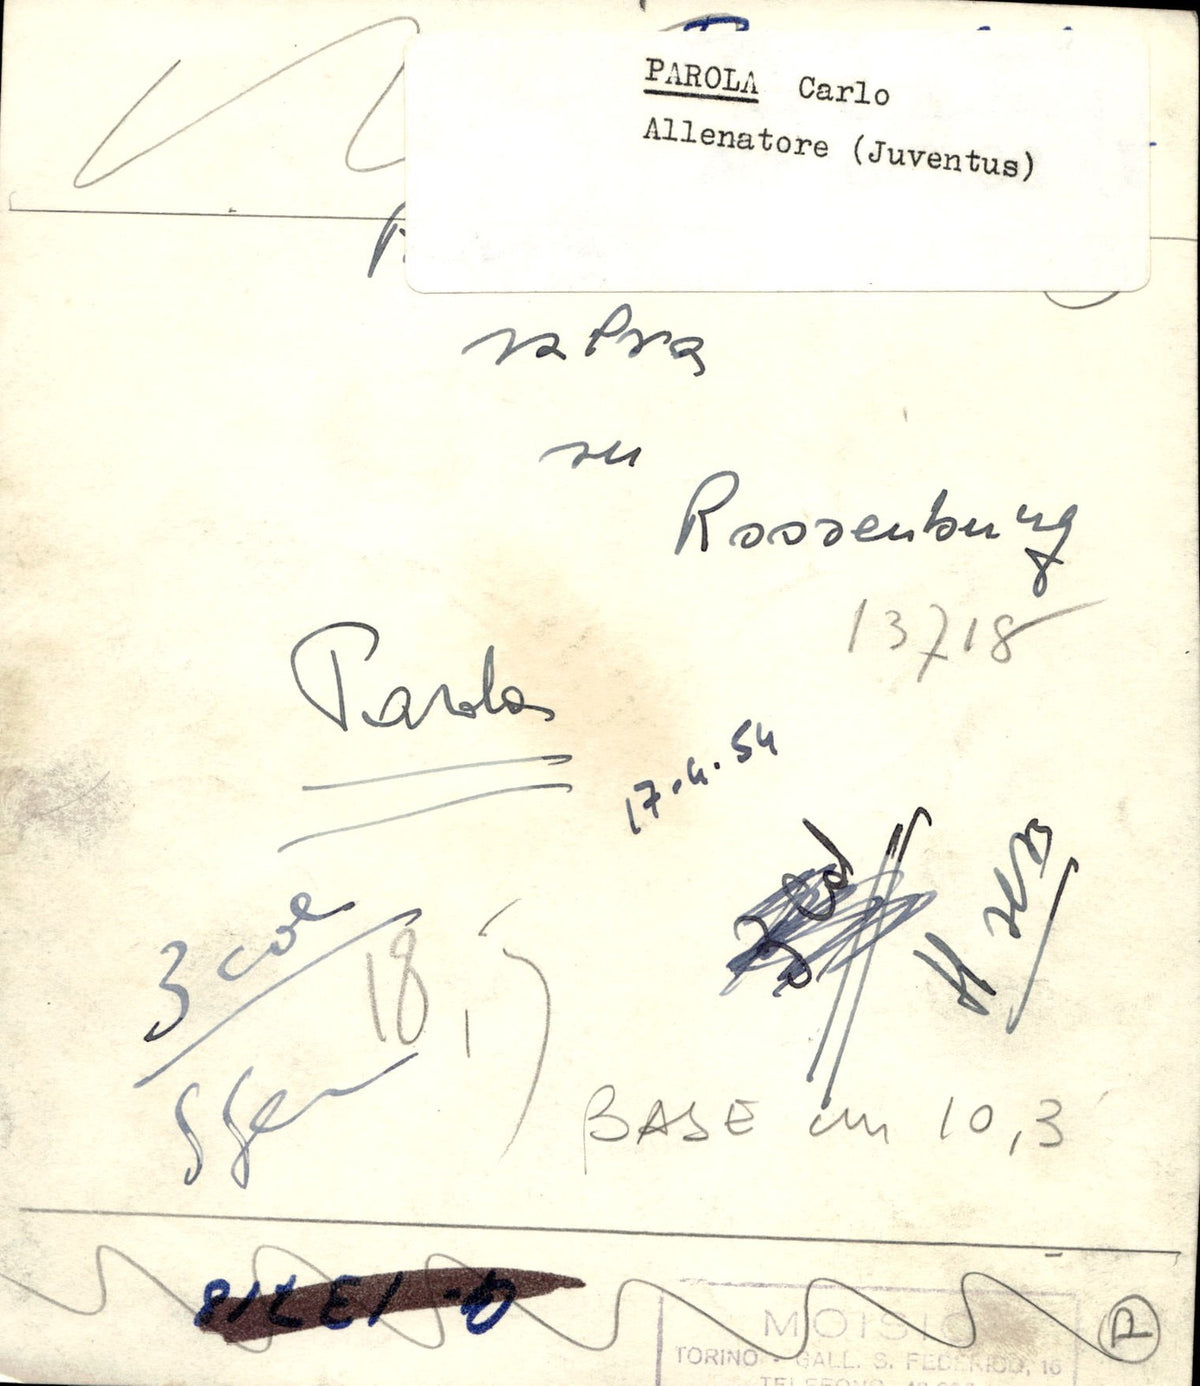 PAROLA Carlo
Allenatore (Juventus)
salva
su
Rossenburg
13718
Parola
17.4.54
3 col
18,
BASE cm 10,3
13718
P
MOISIO
TORINO - GALL. S. FEDERICO, 16
TELEFONO